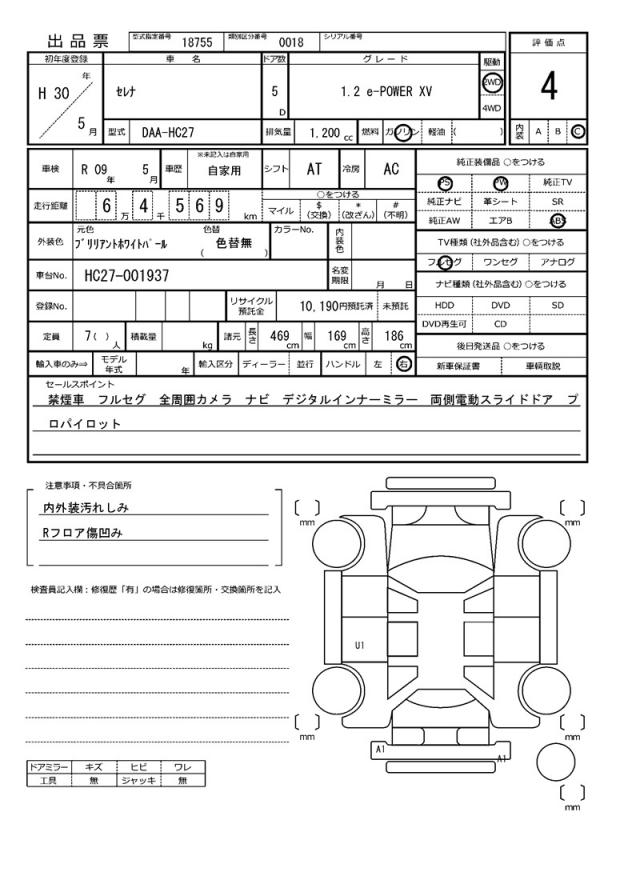 出品票 型式指定番号 18755 類別区分番号 0018 シリアル番号
評価点
4
内装 A B C
初年度登録 車名 ドア数 グレード 駆動
H 30 年 5 月 セレナ 5 D 1.2 e-POWER XV 2WD 4WD
型式 DAA-HC27 排気量 1.200 cc 燃料 ガソリン 軽油 ( )
車検 R 09 年 5 月 車歴 ※未記入は自家用 自家用 シフト AT 冷房 AC
走行距離 6 万 4 千 569 km ○をつける
マイル $(交換) *(改ざん) #(不明)
外装色 元色 色替 カラーNo. 内装色
ブリリアントホワイトパール ( 色替無 )
車台No. HC27-001937 名変期限 月 日
登録No. リサイクル預託金 10,190円預託済 未預託
定員 7( ) 人 積載量 kg 諸元 長さ 469 cm 幅 169 cm 高さ 186 cm
輸入車のみ⇒ モデル年式 年 輸入区分 ディーラー 並行 ハンドル 左 右
純正装備品 ○をつける
PS PW 純正TV
純正ナビ 革シート SR
純正AW エアB ABS
TV種類 (社外品含む) ○をつける
フルセグ ワンセグ アナログ
ナビ種類 (社外品含む) ○をつける
HDD DVD SD
DVD再生可 CD
後日発送品 ○をつける
新車保証書 車輌取説
セールスポイント
禁煙車 フルセグ 全周囲カメラ ナビ デジタルインナーミラー 両側電動スライドドア プ
ロパイロット
注意事項・不具合箇所
内外装汚れしみ
Rフロア傷凹み
検査員記入欄:修復歴「有」の場合は修復箇所・交換箇所を記入
ドアミラー キズ ヒビ ワレ
工具 無 ジャッキ 無
mm
mm
U1
mm
mm
A1
A1
mm